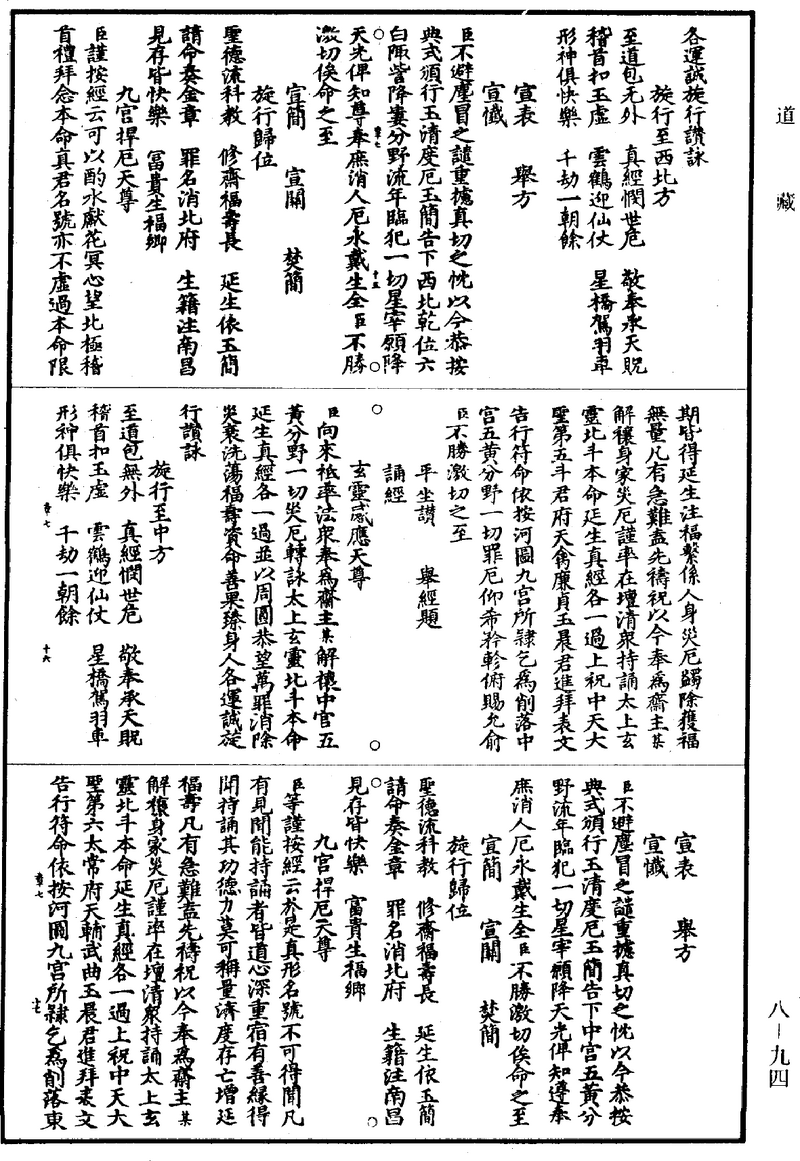 道藏
各運誠旋行讚詠
旋行至西北方
至道包无外　真經憫世危　敬奉承天貺
稽首扣玉虛　雲鶴迎仙仗　星橋駕羽車
形神俱快樂　千劫一朝餘
宣表　舉方
宣懺
臣不避塵冒之譴重攄真切之忱以今恭按
典式頒行玉清度厄玉簡告下西北乾位六
白陬訾降婁分野流年臨犯一切星宰願降
天光俾知尊奉庶消人厄永戴生全臣不勝
激切俟命之至
宣簡　宣關　焚簡
旋行歸位
聖德流科教　修齋福壽長　延生依玉簡
請命奏金章　罪名消北府　生籍注南昌
見存皆快樂　冨貴生福鄉
九宮捍厄天尊
臣謹按經云可以酌水獻花冥心望北極稽
首禮拜念本命真君名號亦不虛過本命限
期皆得延生注福繫係人身災厄蠲除獲福
無量凡有急難盡先禱祝以今奉為齋主某
解禳身家災厄謹率在壇清衆持誦太上玄
靈北斗本命延生真經各一過上祝中天大
聖第五斗君府天禽廉貞玉晨君進拜表文
告行符命依按河圖九宮所隷乞為削落中
宮五黃分野一切罪厄仰希矜軫俯賜允俞
臣不勝激切之至
平坐讚　舉經題
誦經
玄靈感應天尊
臣向來袛率法衆奉為齋主某解禳中宮五
黃分野一切災厄轉詠太上玄靈北斗本命
延生真經各一過並以周圓恭望萬罪消除
災衰洗蕩福壽資命善果臻身人各運誠旋
行讚詠
旋行至中方
至道包無外　真經憫世危　敬奉承天貺
稽首扣玉虛　雲鶴迎仙仗　星橋駕羽車
形神俱快樂　千劫一朝餘
宣表　舉方
宣懺
臣不避塵冒之譴重攄真切之忱以今恭按
典式頒行玉清度厄玉簡告下中宮五黃分
野流年臨犯一切星宰願降天光俾知遵奉
庶消人厄永戴生全臣不勝激切俟命之至
宣簡　宣關　焚簡
旋行歸位
聖德流科教　修齋福壽長　延生依玉簡
請命奏金章　罪名消北府　生籍注南昌
見存皆快樂　富貴生福鄉
九宮捍厄天尊
臣等謹按經云於是真形名號不可得聞凡
有見聞能持誦者皆道心深重宿有善緣得
聞持誦其功德力莫可稱量濟度存亡增延
福壽凡有急難盡先禱祝以今奉為齋主某
解禳身家災厄謹率在壇清衆持誦太上玄
靈北斗本命延生真經各一過上祝中天大
聖第六太常府天輔武曲玉晨君進拜表文
告行符命依按河圖九宮所隷乞為削落東
八－九四